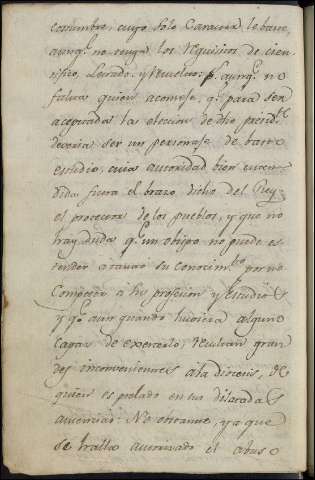 costumbre, cuyo solo Caracter le baste,
aunq.e no tenga los requisitos de cien-
tifico, Letrado, y
faltara quien aconseje, q.e para ser
acceptada la eleccion de dho presid.te
deveria ser un personaje de basto
estudio, cuia autoridad bien enten-
dida fuera el brazo dicho del Rey,
el protector de los pueblos, y que no
hay duda q.e un obispo no puede es-
tender a tanto su conocim.to por no
Competer a su profesion y estudio
y q.e aun quando huviera alguno
Capaz de exercerlo, resultan gran-
des inconvenientes a la diocesis, de
quien es prelado en sus dilatadas
ausencias: No obstante, ya que
se halla autorizado el abuso